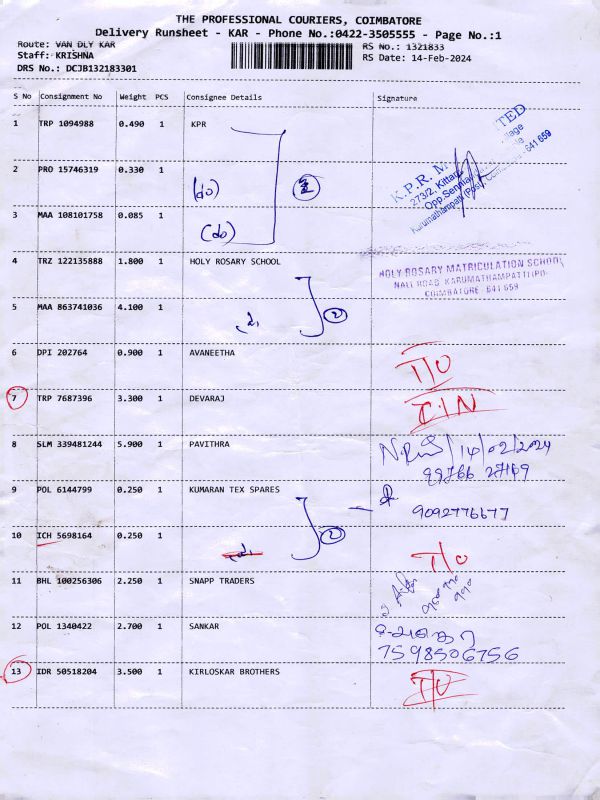 THE PROFESSIONAL COURIERS, COIMBATORE
Delivery Runsheet - KAR - Phone No.:0422-3505555 - Page No.:1
Route: VAN DLY KAR RS No.: 1321833
Staff: KRISHNA RS Date: 14-Feb-2024
DRS No.: DCJB132183301
S No Consignment No Weight PCS Consignee Details Signature
1 TRP 1094988 0.490 1 KPR
2 PRO 15746319 0.330 1 (do)
3 MAA 108101758 0.085 1 (do)
K.P.R.
273/2, Kittam
Karumathampatti (Post), 641 659
4 TRZ 122135888 1.800 1 HOLY ROSARY SCHOOL
HOLY ROSARY MATRICULATION SCHOOL
NALL ROAD KARUMATHAMPATTI (PO
COIMBATORE 641 659
5 MAA 863741036 4.100 1 do, 2
6 DPI 202764 0.900 1 AVANEETHA T/O
7 TRP 7687396 3.300 1 DEVARAJ
8 SLM 339481244 5.900 1 PAVITHRA 14/02/2024
9 POL 6144799 0.250 1 KUMARAN TEX SPARES 9092776677
10 ICH 5698164 0.250 1 2 T/O
11 BHL 100256306 2.250 1 SNAPP TRADERS
12 POL 1340422 2.700 1 SANKAR
7598506756
13 IDR 50518204 3.500 1 KIRLOSKAR BROTHERS T/O